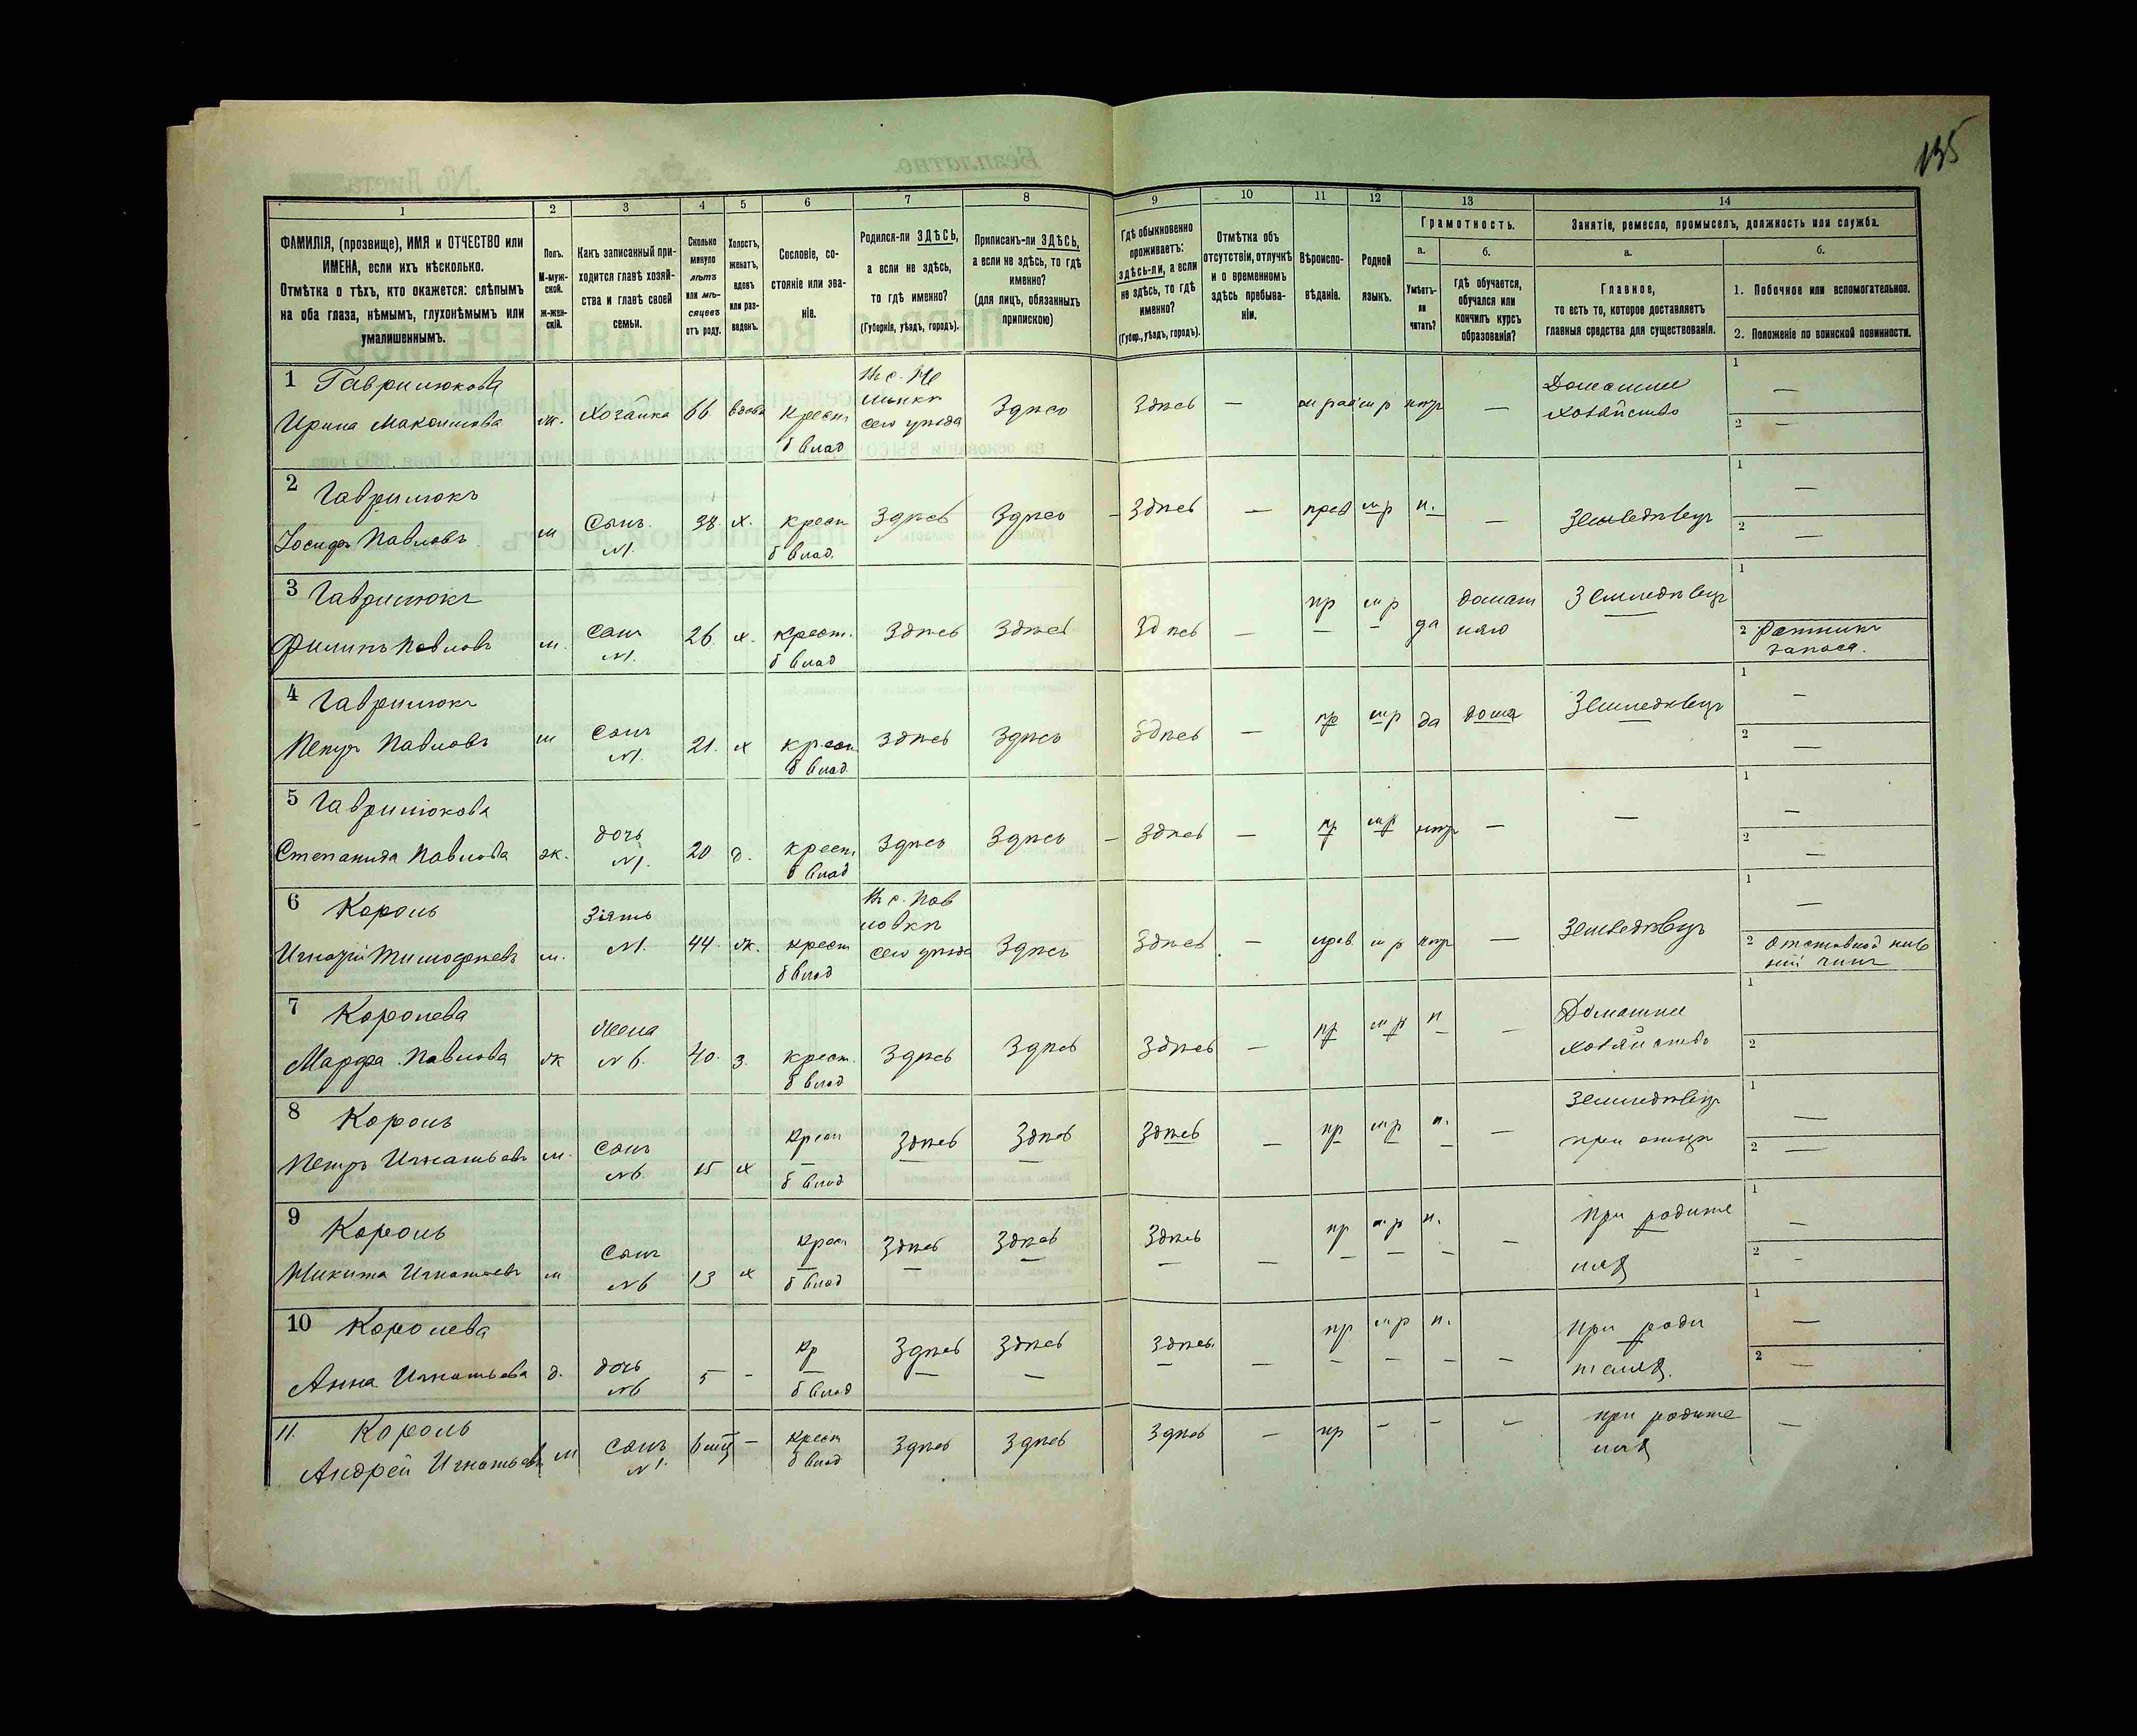 135
1 2 3 4 5 6 7 8 9 10 11 12 13 14
ФАМИЛІЯ, (прозвище), ИМЯ и ОТЧЕСТВО или
ИМЕНА, если ихъ нѣсколько.
Отмѣтка о тѣхъ, кто окажется: слѣпымъ
на оба глаза, нѣмымъ, глухонѣмымъ или
умалишеннымъ.
Полъ.
М-муж-
ской.
ж-жен-
скій.
Какъ записанный при-
ходится главѣ хозяй-
ства и главѣ своей
семьи.
Сколько
минуло
лѣтъ
или мѣ-
сяцевъ
отъ роду.
Холостъ,
женатъ,
вдовъ
или раз-
веденъ.
Сословіе, со-
стояніе или зва-
ніе.
Родился-ли ЗДѢСЬ,
а если не здѣсь,
то гдѣ именно?
(Губернія, уѣздъ, городъ).
Приписанъ-ли ЗДѢСЬ,
а если не здѣсь, то гдѣ
именно?
(для лицъ, обязанныхъ
припискою)
Гдѣ обыкновенно
проживаетъ:
здѣсь-ли, а если
не здѣсь, то гдѣ
именно?
(Губер., уѣздъ, городъ).
Отмѣтка объ
отсутствіи, отлучкѣ
и о временномъ
здѣсь пребыва-
ніи.
Вѣроиспо-
вѣданіе.
Родной
языкъ.
Грамотность.
а.
Умѣетъ-
ли
читать?
б.
гдѣ обучается,
обучался или
кончилъ курсъ
образованія?
Занятіе, ремесло, промыселъ, должность или служба.
а.
Главное,
то есть то, которое доставляетъ
главныя средства для существованія.
б.
1. Побочное или вспомогательное.
2. Положеніе по воинской повинности.
1 Гаврилюкова
Ирина Максимова ж. хозяйка 66 вдова крест б влад сего уѣзда Здѣсь Здѣсь — —
Домашнее
хозяйство
1 —
2 —
2 Гаврилюкъ
Іосифъ Павловъ м Сынъ №1. 38. х. крест б влад. Здѣсь Здѣсь Здѣсь — прав мр н. — Земледѣлецъ
1 —
2 —
3 Гаврилюкъ
Филипъ Павловъ м. Сынъ №1. 26. х. крест. б влад Здѣсь Здѣсь Здѣсь — пр мр да домаш няго Земледѣлецъ
1
2 Ратникъ
запаса.
4 Гаврилюкъ
Петръ Павловъ м Сынъ №1. 21. х крест б влад. Здѣсь Здѣсь Здѣсь — пр мр да дома Земледѣлецъ
1 —
2 —
5 Гаврилюкова
Степанида Павлова ж. дочь №1. 20. д. крест б влад Здѣсь Здѣсь Здѣсь — пр мр — —
1 —
2 —
6 Король
Игнатій Тимофѣевъ м. Зять №1. 44. ж. крест б влад Въ с. Пав ловкѣ сего уѣзда Здѣсь Здѣсь — прав мр — Земледѣлецъ
1 —
2 Отставной ниж
ній чинъ
7 Королева
Марфа Павлова ж жена №6. 40. з. крест. б влад Здѣсь Здѣсь Здѣсь — пр мр н — Домашнее
хозяйство
1
2
8 Король
Петръ Игнатьевъ м. Сынъ №6. 15 х крест б влад Здѣсь Здѣсь Здѣсь — пр мр н. — Земледѣлецъ
при отцѣ
1 —
2 —
9 Король
Никита Игнатьевъ м Сынъ №6 13 х крест б влад Здѣсь Здѣсь Здѣсь — пр мр н. — при родите
ляхъ
1 —
2 —
10 Королева
Анна Игнатьева д. дочь №6 5 — кр б влад Здѣсь Здѣсь Здѣсь. — пр мр н. — при роди
теляхъ.
1 —
2 —
11. Король
Андрей Игнатьевъ м Сынъ №1. 6 мѣц — крест б влад Здѣсь Здѣсь Здѣсь — пр — — — при родите
ляхъ —